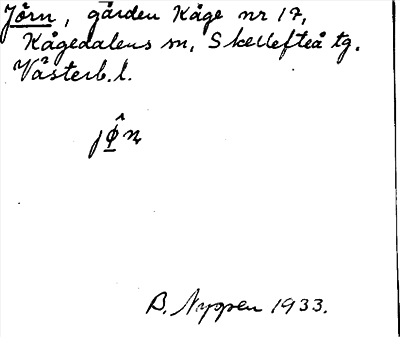 Jörn, gården Kåge nr 17,
Kågedalens sn, Skellefteå tg.
Västerb. l.
B. Nyppen 1933.